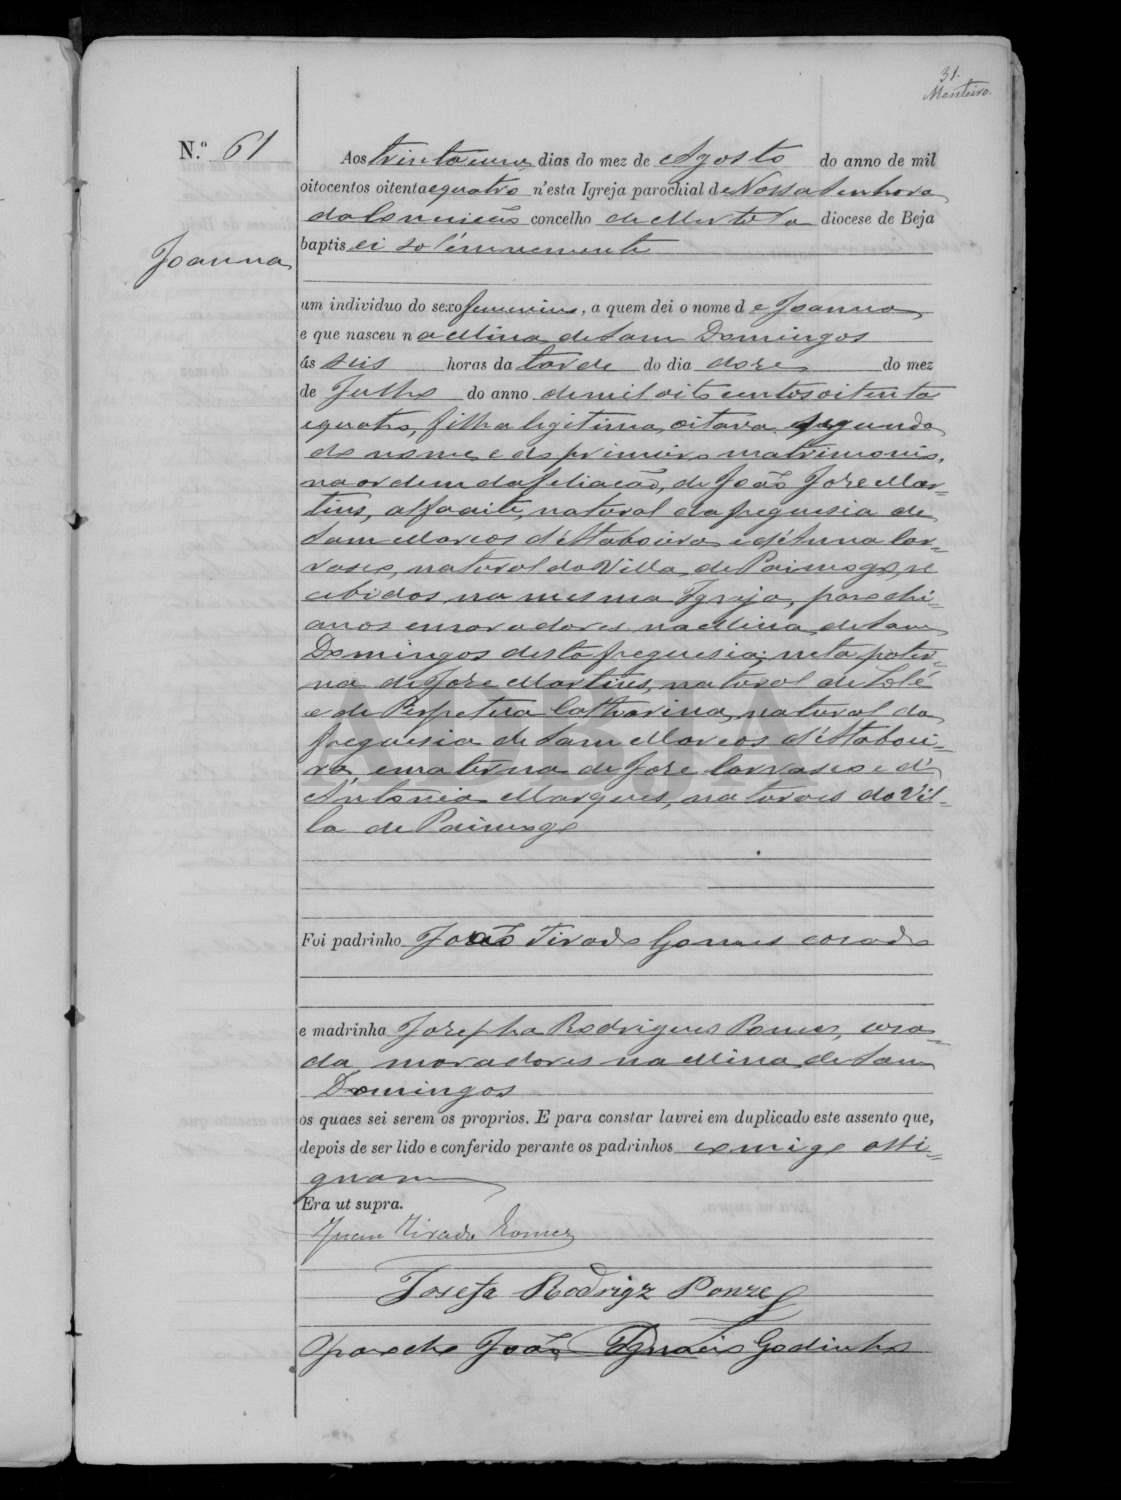 31.
Monteiro.
N.º 61
Aos trinta e um dias do mez de Agosto do anno de mil
oitocentos oitenta e quatro n'esta Igreja parochial de Nossa Senhora
da Conceição concelho de Mertola diocese de Beja
baptisei solémnemente
Joanna
um individuo do sexo femenino, a quem dei o nome de Joanna
e que nasceu na Mina de Sam Domingos
ás seis horas da tarde do dia doze do mez
de Julho do anno de mil oito centos oitenta
e quatro, filha legitima, oitava, segunda
do nome e do primeiro matrimonio,
na ordem da filiação, de João Jose Mar=
tins, alfaiate, natural da freguesia de
Sam Marcos d'Ataboeira e d'Anna Car=
rasco, natural da Villa de Paimogo, re
cebidos na mesma Igreja, parochi=
anos e moradores na Mina de Sam
Domingos desta freguesia; neta pater=
na de Jose Martins, natural de Lolé
e de Perpetua Catharina, natural da
freguesia de Sam Marcos d'Ataboei=
ra, e materna de Jose Carrasco e d'
Antonia Marques, naturaes da Vil=
la de Paimogo
ADBJA
Foi padrinho João Tirado Gomes casado
e madrinha Josepha Rodrigues Ponces, casa=
da moradores na Mina de Sam
Domingos
os quaes sei serem os proprios. E para constar lavrei em duplicado este assento que,
depois de ser lido e conferido perante os padrinhos comigo assi=
gnam
Era ut supra.
Juan Tirado Gomez
Josefa Rodrigz Ponze
O parocho João Ignacio Godinho